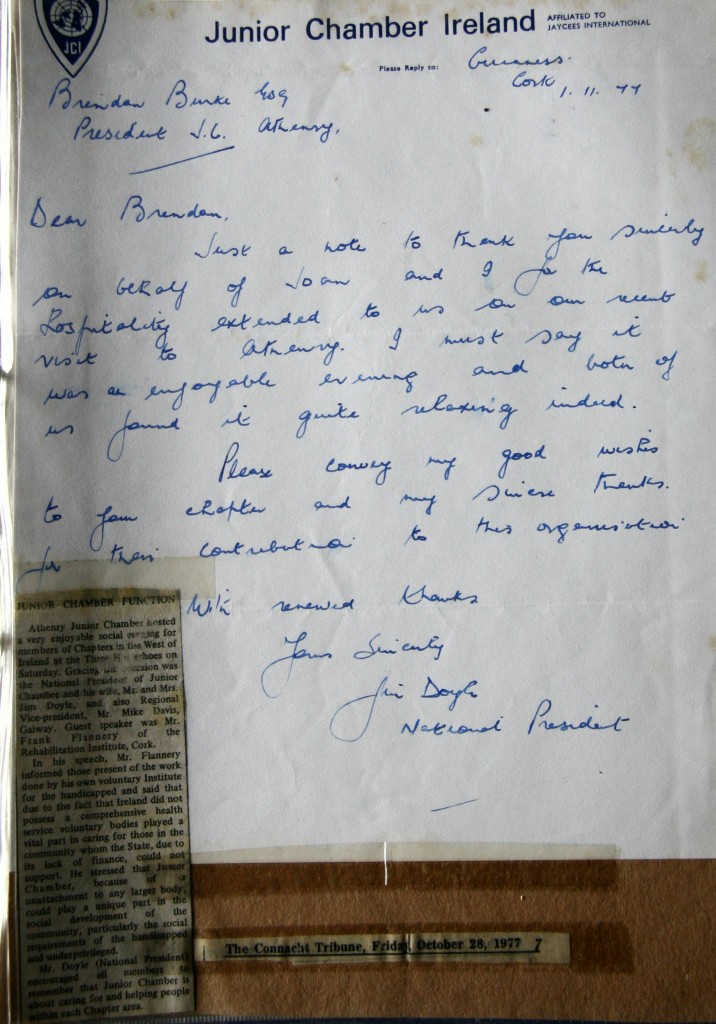 JCI
Junior Chamber Ireland
AFFILIATED TO
JAYCEES INTERNATIONAL
Please Reply to: Guinness.
Cork 1. 11. 77
Brendan Burke Esq
President J.C. Athenry,
Dear Brendan,
Just a note to thank you sincerely
on behalf of Joan and I for the
hospitality extended to us on our recent
visit to Athenry. I must say it
was an enjoyable evening and both of
us found it quite relaxing indeed.
Please convey my good wishes
to your chapter and my sincere thanks.
for their contribution to this organisation
With renewed thanks
Yours Sincerely
Jim Doyle
National President
JUNIOR CHAMBER FUNCTION
Athenry Junior Chamber hosted
a very enjoyable social evening for
members of Chapters in the West of
Ireland at the Three on
Saturday. Gracing the occasion was
the National President of Junior
Chamber and his wife, Mr. and Mrs.
Jim Doyle, and also Regional
Vice-president, Mr. Mike Davis,
Galway. Guest speaker was Mr.
Frank Flannery of the
Rehabilitation Institute, Cork.
In his speech, Mr. Flannery
informed those present of the work
done by his own voluntary Institute
for the handicapped and said that
due to the fact that Ireland did not
possess a comprehensive health
service voluntary bodies played a
vital part in caring for those in the
community whom the State, due to
its lack of finance, could not
support. He stressed that Junior
Chamber, because of
unattachment to any larger body,
could play a unique part in the
social development of the
community, particularly the social
requirements of the handicapped
and underprivileged.
Mr. Doyle (National President)
encouraged all members to
remember that Junior Chamber is
about caring for and helping people
within each Chapter area.
The Connacht Tribune, Friday, October 28, 1977 7